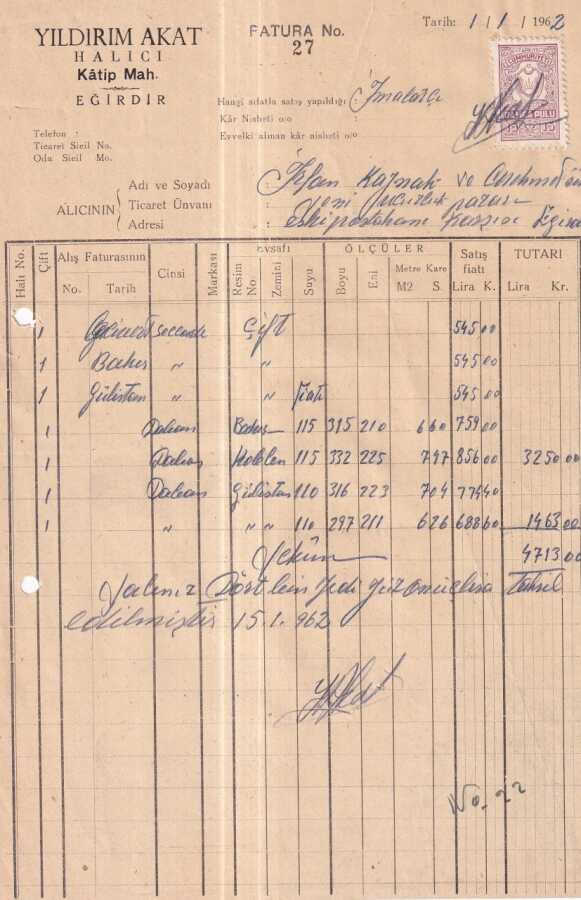 YILDIRIM AKAT
HALICI
Kâtip Mah.
EĞİRDİR
FATURA No.
27
Tarih: 1/1/1962
CUMHURİYETİ
PULU
15 15
Telefon :
Ticaret Sicil No.
Oda Sicil Mo.
Hangi sıfatla satış yapıldığı : İmalatçı
Kâr Nisbeti o/o :
Evvelki alman kâr nisbeti o/o :
ALICININ
Adı ve Soyadı : İrfan Kaynak ve
Ticaret Ünvanı : Yeni pazarı
Adresi : eski postahane karşısı
Halı No. Çift Alış Faturasının Cinsi Markası Evsafı ÖLÇÜLER Satış fiatı TUTARI
No. Tarih Resim No. Zemini Suyu Boyu Eni Metre Kare M2 S. Lira K. Lira Kr.
1 seccade Çift 545 00
1 Bahar " " 545 00
1 Gülistan " fiatı 545 00
1 Taban 115 315 210 6 60 759 00
1 Taban 115 332 225 7 47 856 00 3250 00
1 Taban Gülistan 110 316 223 7 04 774 40
1 " " " 110 297 211 6 26 688 60 1463 00
Yekûn 4713 00
Yalınız Dört bin Yedi yüz onüç lira tahsil
edilmiştir 15.1.962
No. 22